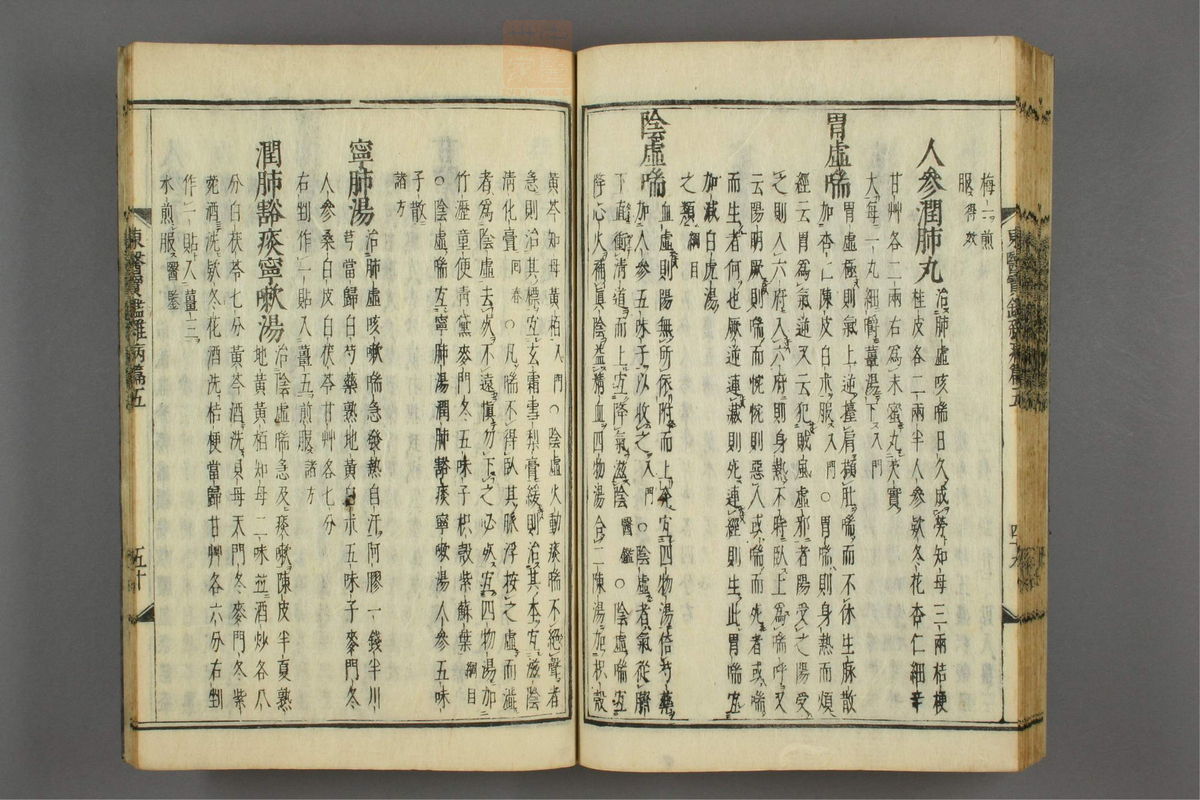 梅二煎
服得效
人參潤肺丸 治肺虛咳喘日久成勞知母三兩桔梗
桂皮各二兩半人參款冬花杏仁細辛
甘艸各二兩右爲末蜜丸如芡實
大每一丸細嚼薑湯下入門
胃虛喘 胃虛極則氣上逆擡肩擷肚喘而不休生脉散
加杏仁陳皮白朮服入門○胃喘則身熱而煩
經云胃爲氣逆又云犯賊風虛邪者陽受之陽受
之則入六府入六府則身熱不時臥上爲喘呼又
云陽明厥則喘而惋惋則惡人或喘而死者或喘
而生者何也厥逆連藏則死連經則生此胃喘宜
加減白虎湯
之類綱目
陰虛喘 血虛則陽無所依附而上奔宜四物湯倍芍藥
加人參五味子以收之入門○陰虛者氣從臍
下直衝清道而上宜降氣滋陰醫鑑○陰虛喘宜
降心火補眞陰益精血四物湯合二陳湯加枳殼
黃芩知母黃栢入門○陰虛火動痰喘不絕聲者
急則治其標宜玄霜雪梨膏緩則治其本宜滋陰
清化膏回春○凡喘不得臥其脉浮按之虛而濇
者爲陰虛去死不遠愼勿下之下之必死宜四物湯加
竹瀝童便靑黛麥門冬五味子枳殼紫蘇葉綱目
○陰虛喘宜寧肺湯潤肺豁痰寧嗽湯人參五味
子散
諸方
寧肺湯 治肺虛咳嗽喘急發熱自汗阿膠一錢半川
芎當歸白芍藥熟地黃白朮五味子麥門冬
人參桑白皮白茯苓甘艸各七分
右剉作一貼入薑五煎服諸方
潤肺豁痰寧嗽湯 治陰虛喘急及痰嗽陳皮半夏熟
地黃黃栢知母二味並酒炒各八
分白茯苓七分黃芩酒洗貝母天門冬麥門冬紫
菀酒洗款冬花酒洗桔梗當歸甘艸各六分右剉
作一貼入薑三
水煎服醫鑑
東醫寶鑑雜病篇五
五十